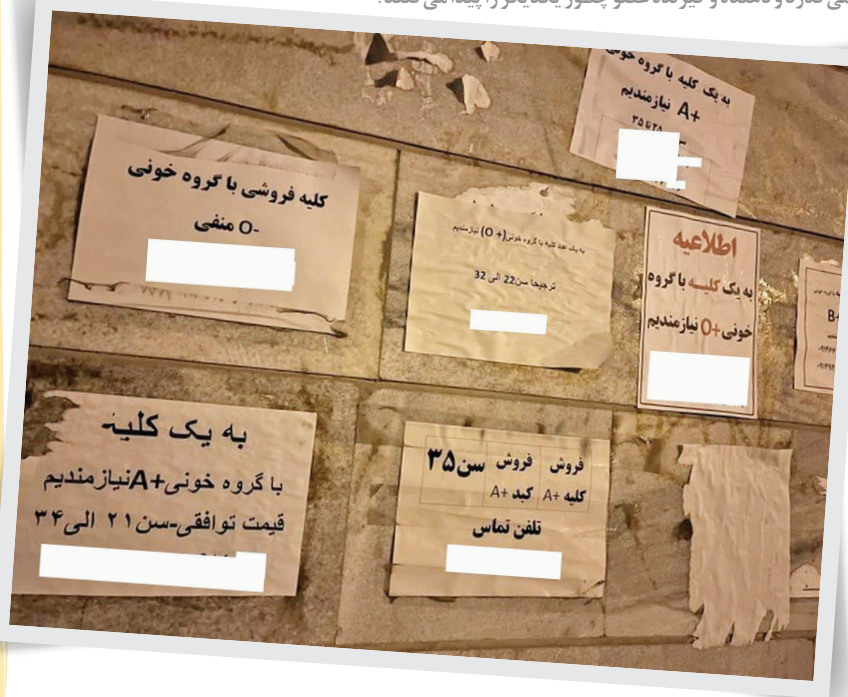 دهنده و گیرنده عضو چطور یکدیگر را پیدا می‌کنند؟
به یک کلیه با گروه خونی
A+ نیازمندیم
۲۸ تا ۳۵
کلیه فروشی با گروه خونی
O- منفی
به یک عدد کلیه با گروه خونی(O +) نیازمندیم
ترجیحا سن22 الی 32
اطلاعیه
به یک کلیه با گروه
خونی O+ نیازمندیم
B+
به یک کلیه
با گروه خونی A+ نیازمندیم
قیمت توافقی-سن ۲۱ الی ۳۴
فروش فروش سن ۳۵
کلیه A+ کبد A+
تلفن تماس